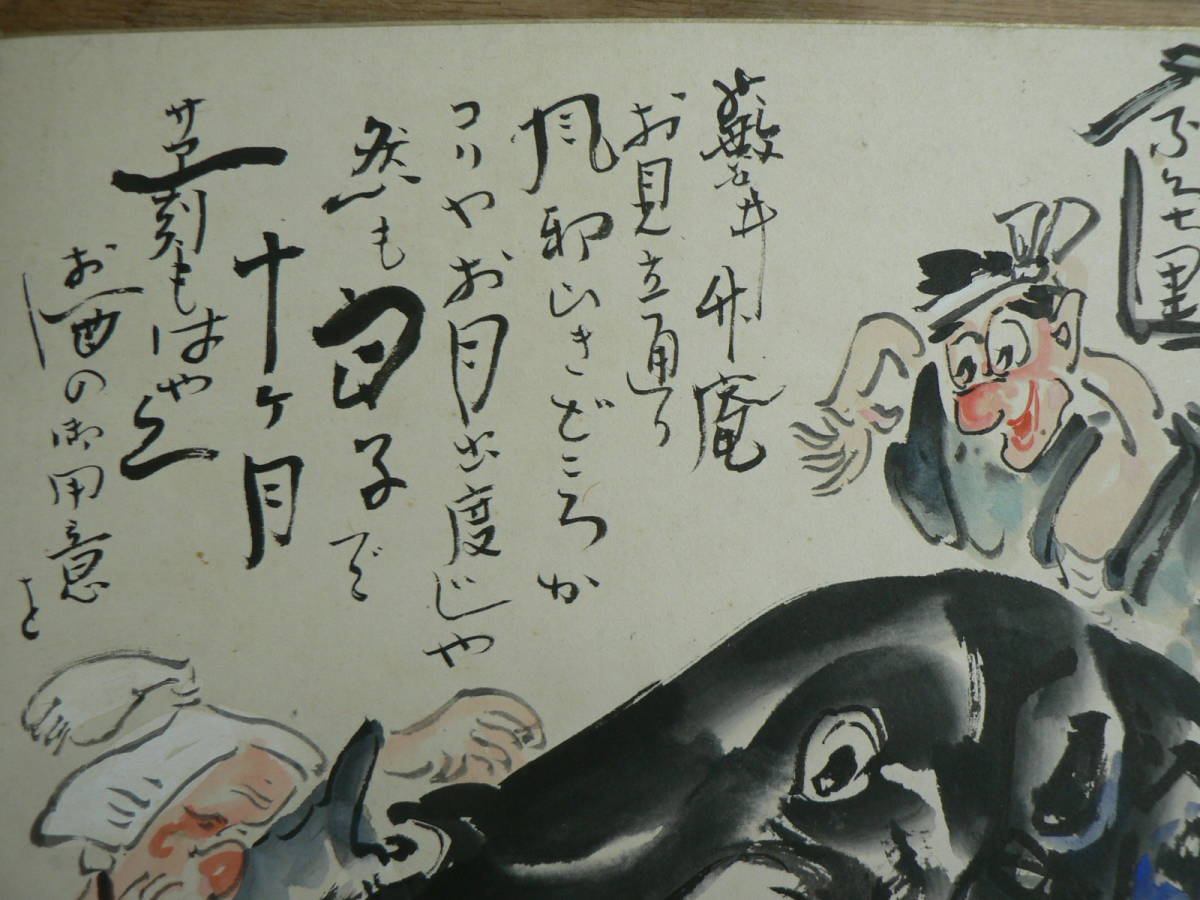 ふく七里
藪井竹庵
お見立通り
風邪ひきどころか
コリやお目出度じや
然も白子で
十ケ月
サアー刻もはや
く
お酒の御用意
を